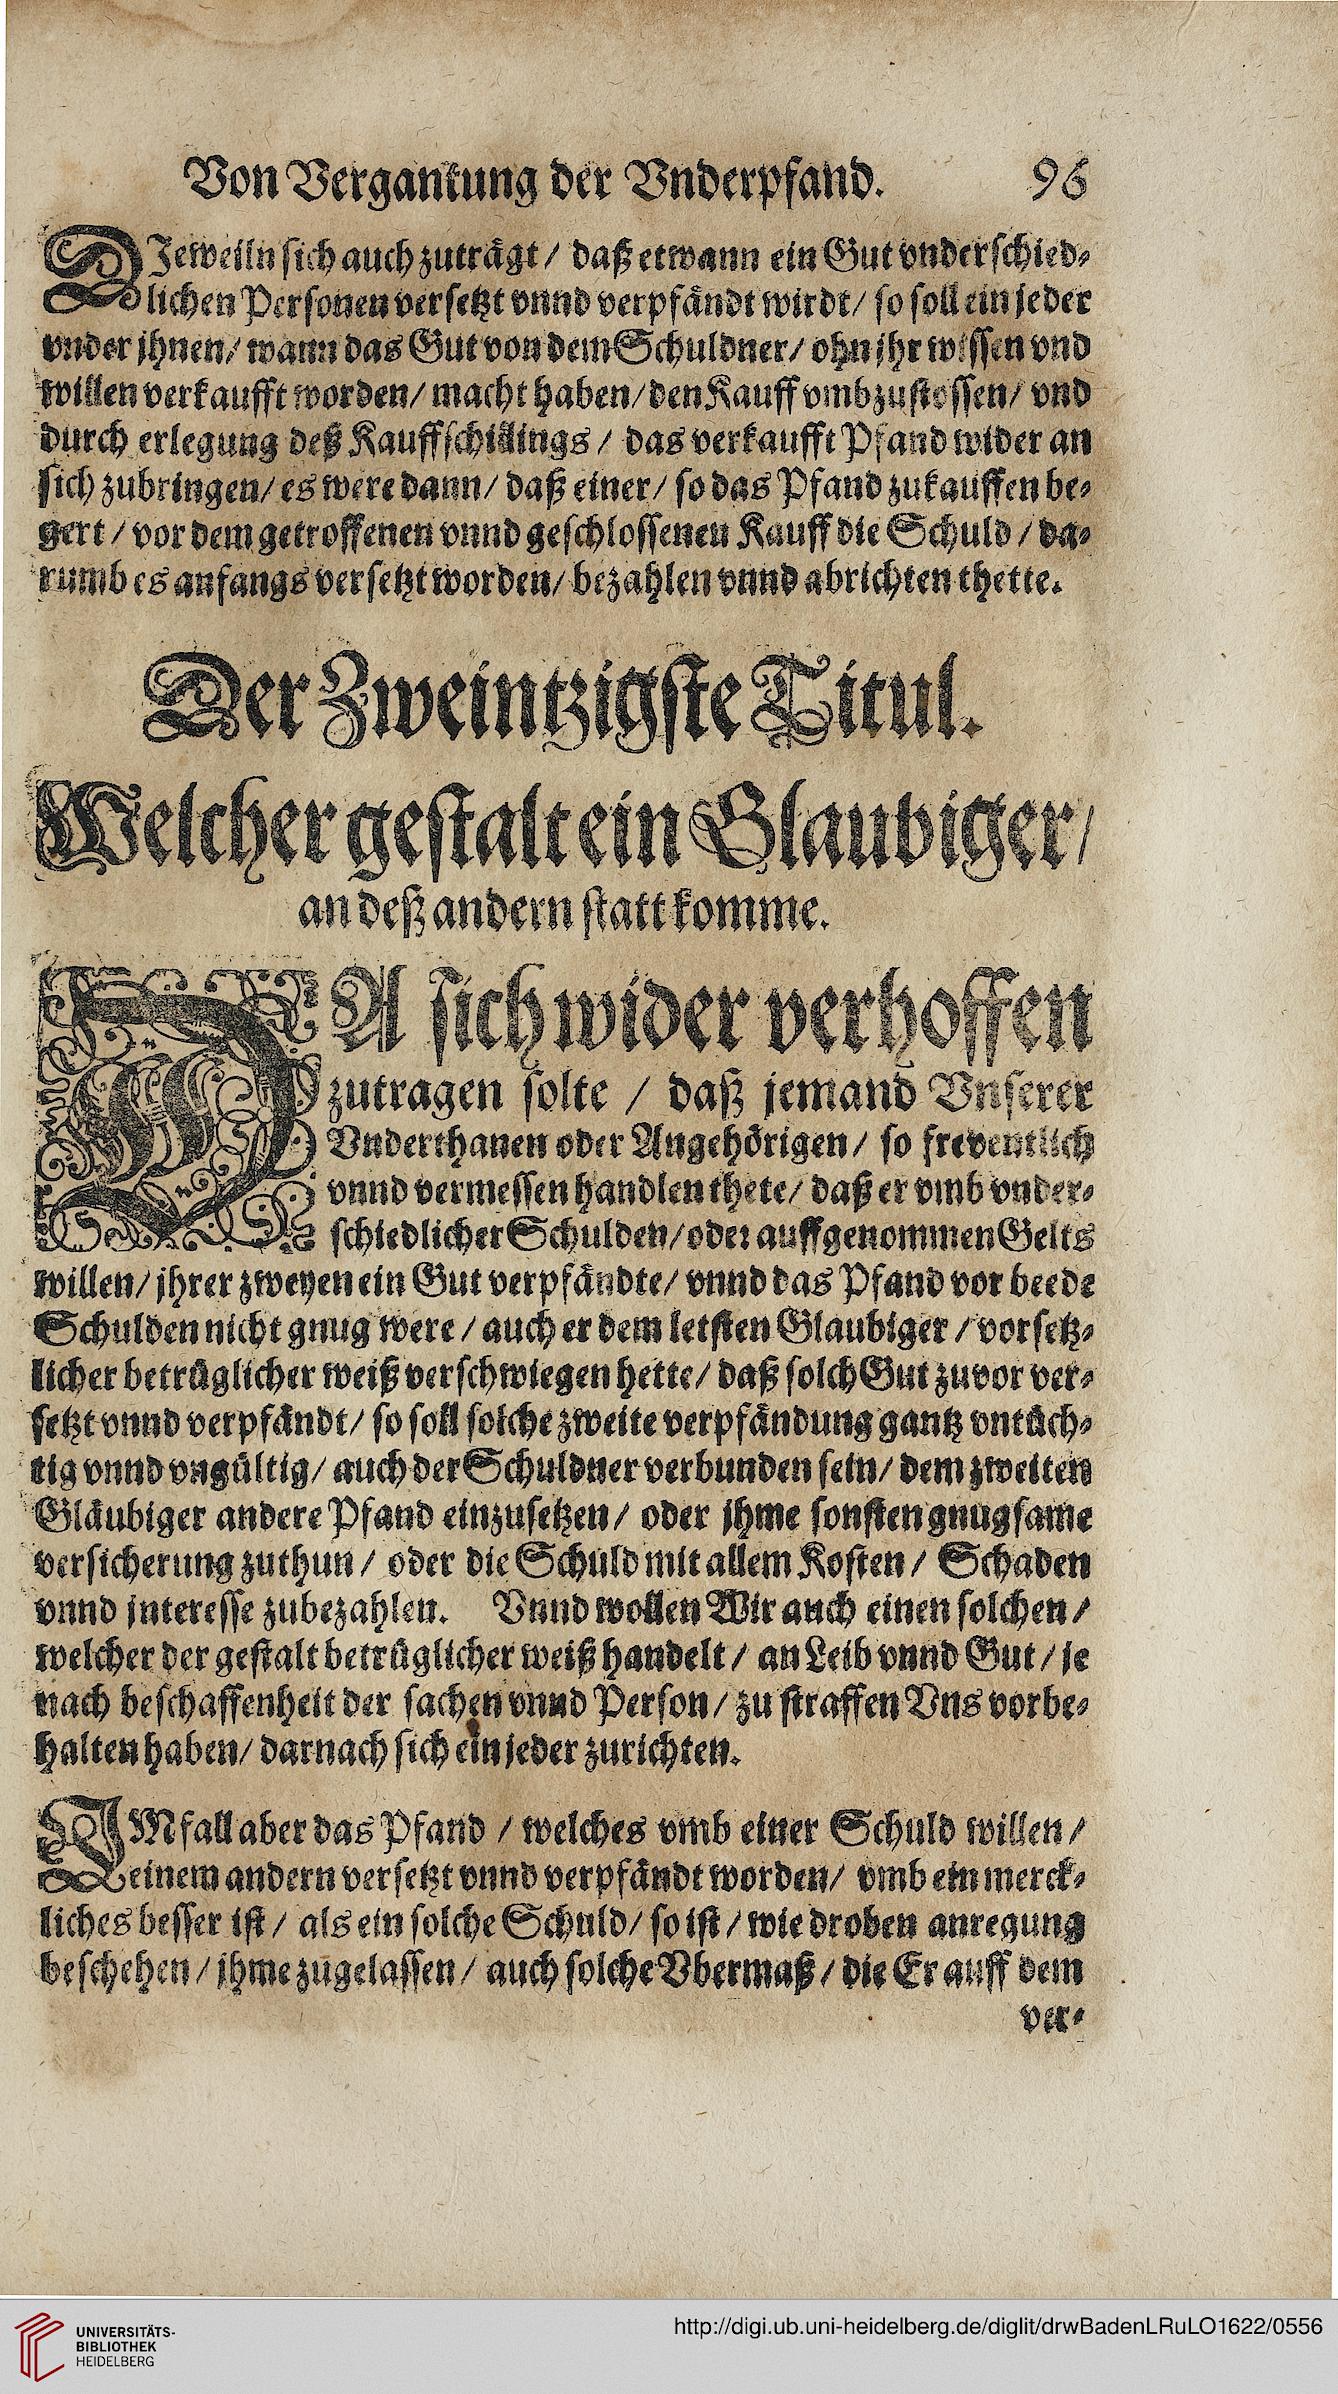 Von Vergantung der Vnderpfand. 96
DJeweiln sich auch zuträgt / daß etwann ein Gut vnderschied-
lichen Personen versetzt vnnd verpfändt wirdt / so soll ein jeder
vnder jhnen / wann das Gut von dem Schuldner / ohn jhr wissen vnd
willen verkaufft worden / macht haben / den Kauff vmbzustossen / vnd
durch erlegung deß Kauffschillings / das verkaufft Pfand wider an
sich zubringen / es were dann / daß einer / so das Pfand zukauffen be-
gert / vor dem getroffenen vnnd geschlossenen Kauff die Schuld / da-
rumb es anfangs versetzt worden / bezahlen vnnd abrichten thette.
Der Zweintzigste Titul.
Welcher gestalt ein Glaubiger /
an deß andern statt komme.
DA sich wider verhoffen
zutragen solte / daß jemand Vnserer
Vnderthanen oder Angehörigen / so freventlich
vnnd vermessen handlen thete / daß er vmb vnder-
schiedlicher Schulden / oder auffgenommen Gelts
willen / jhrer zweyen ein Gut verpfändte / vnnd das Pfand vor beede
Schulden nicht gnug were / auch er dem letsten Glaubiger / vorsetz-
licher betrüglicher weiß verschwiegen hette / daß solch Gut zuvor ver-
setzt vnnd verpfändt / so soll solche zweite verpfändung gantz vntüch-
tig vnnd vngültig / auch der Schuldner verbunden sein / dem zweiten
Gläubiger andere Pfand einzusetzen / oder jhme sonsten gnugsame
versicherung zuthun / oder die Schuld mit allem Kosten / Schaden
vnnd interesse zubezahlen. Vnnd wollen Wir auch einen solchen /
welcher der gestalt betrüglicher weiß handelt / an Leib vnnd Gut / je
nach beschaffenheit der sachen vnnd Person / zu straffen Vns vorbe-
halten haben / darnach sich ein jeder zurichten.
JM fall aber das Pfand / welches vmb einer Schuld willen /
einem andern versetzt vnnd verpfändt worden / vmb ein merck-
liches besser ist / als ein solche Schuld / so ist / wie droben anregung
beschehen / jhme zugelassen / auch solche Vbermaß / die Er auff dem
ver-
UNIVERSITÄTS-
BIBLIOTHEK
HEIDELBERG
http://digi.ub.uni-heidelberg.de/diglit/drwBadenLRuLO1622/0556